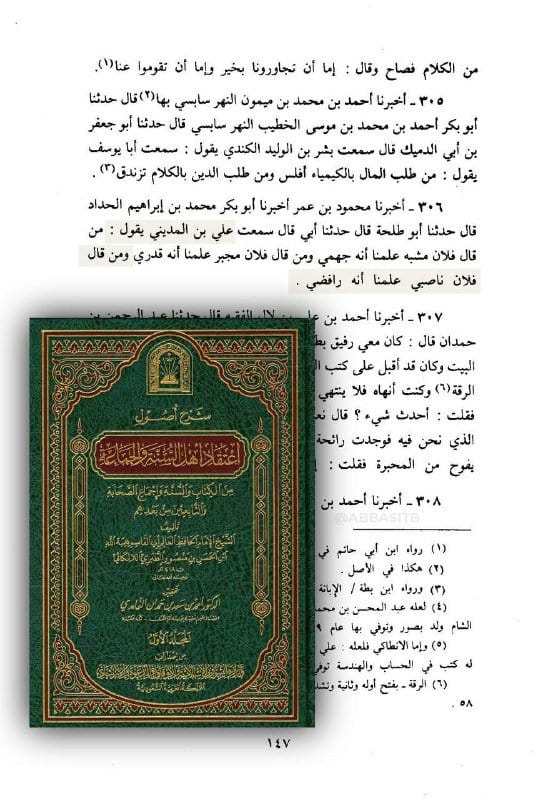 من الكلام فصاح وقال : إما أن تجاورونا بخير وإما أن تقوموا عنا(١).
٣٠٥ ـ أخبرنا أحمد بن محمد بن ميمون النهر سابسي بها(٢) قال حدثنا
أبو بكر أحمد بن محمد بن موسى الخطيب النهر سابسي قال حدثنا أبو جعفر
بن أبي الدميك قال سمعت بشر بن الوليد الكندي يقول : سمعت أبا يوسف
يقول : من طلب المال بالكيمياء أفلس ومن طلب الدين بالكلام تزندق(٣).
٣٠٦ ـ أخبرنا محمود بن عمر أخبرنا أبو بكر محمد بن إبراهيم الحداد
قال حدثنا أبو طلحة قال حدثنا أبي قال سمعت علي بن المديني يقول : من
قال فلان مشبه علمنا أنه جهمي ومن قال فلان مجبر علمنا أنه قدري ومن قال
فلان ناصبي علمنا أنه رافضي .
٣٠٧ ـ أخبرنا أحمد بن علي بن لال الفقيه قال حدثنا عبد الرحمن بن
حمدان قال : كان معي رفيق
البيت وكان قد أقبل على كتب
الرقة(٦) وكنت أنهاه فلا ينتهي
فقلت : أحدث شيء ؟ قال
الذي نحن فيه فوجدت رائحة
يفوح من المحبرة فقلت :
٣٠٨ ـ أخبرنا أحمد بن
@ABBASITB
(١) رواه ابن أبي حاتم في
(٢) هكذا في الأصل .
(٣) ورواه ابن بطة / الإبانة
(٤) لعله عبد المحسن بن محمد
الشام ولد بصور وتوفي بها عام
(٥) وإما الانطاكي فلعله : علي
له كتب في الحساب والهندسة توفي
(٦) الرقة ـ بفتح أوله وثانية
٥٨ .
١٤٧
شرح أصول
اعتقاد أهل السنة والجماعة
من الكتاب والسنة وإجماع الصحابة
والتابعين من بعدهم
تأليف
الشيخ الإمام العالم الحافظ أبي القاسم هبة الله
ابن الحسن بن منصور الطبري اللالكائي
تحقيق
الدكتور أحمد بن سعد بن حمدان الغامدي
المجلد الأول